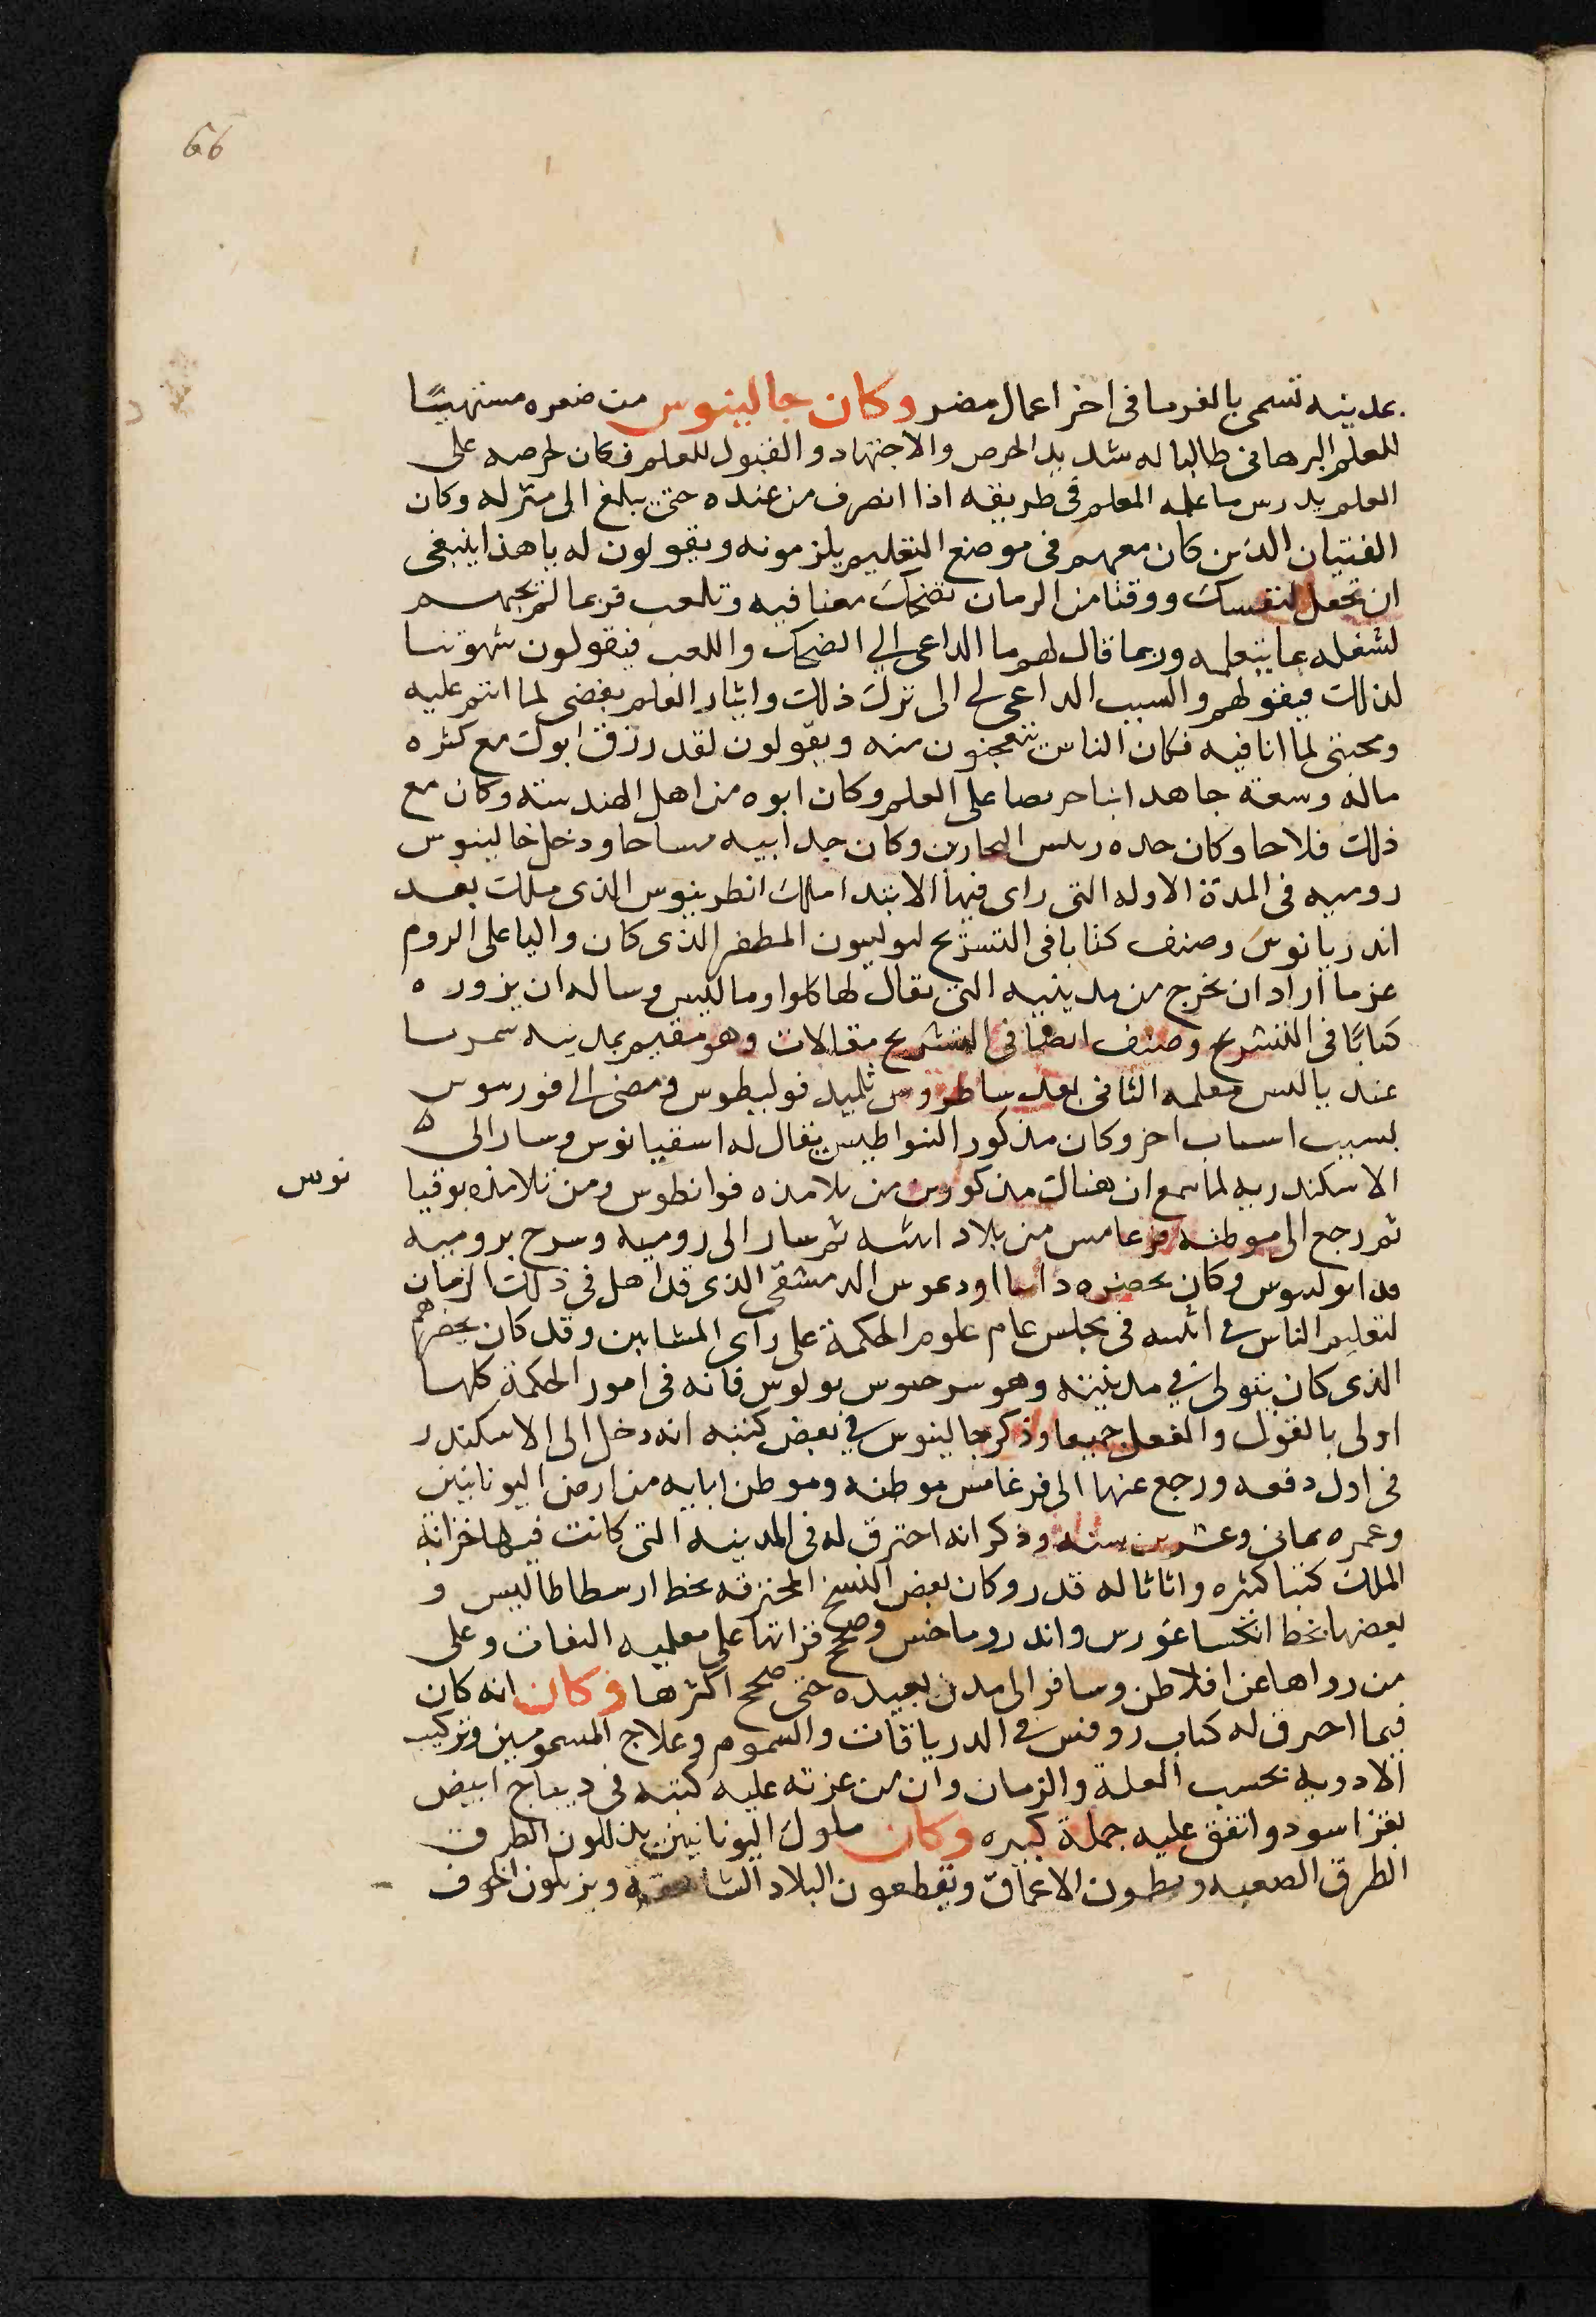 66
بمدينه تسمى بالفرما فى اخر اعمال مصر وكان جالينوس من صغره مشتهيًا
للعلم البرهانى طالبا له شديد الحرص والاجتهاد والقبول للعلم فكان لحرصه على
العلم يدرس ما علمه المعلم فى طريقه اذا انصرف من عنده حتى يبلغ الى منزله وكان
الفتيان الذين كان معهم فى موضع التعليم يلزمونه ويقولون له يا هذا ينبغى
ان تجعل لنفسك ووقتا من الزمان تضحك معنا فيه وتلعب فربما لم يجبهم
لشغله بما يتعلمه وربما قال لهم ما الداعى الى الضحك واللعب فيقولون شهوتنا
لذلك فيقولهم والسبب الداعى لى الى ترك ذلك وايثار العلم بغضى لما انتم عليه
ومحبتى لما انا فيه فكان الناس يتعجبون منه ويقولون لقد رزق ابوك مع كثره
ماله وسعة جاهه ابنا حريصا على العلم وكان ابوه من اهل الهندسته وكان مع
ذلك فلاحا وكان جده رىىس النجارين وكان جد ابيه مساحا ودخل خالينوس
روميه فى المدة الاوله التى راى فيها الابتدا ملك انطرينوس الذى ملك بعد
اندريانوس وصنف كتابا فى التشريح لبوليبون المظفر الذى كان واليا على الروم
عزما اراد ان يخرج من مدينيه التى يقال لها كلوا وماليس وساله ان يزوره
كتابًا فى التشريح وصنف ايضا فى التشريح مقالات وهو مقيم بمدينه سمرىا
عند بالىس معلمه الثانى بعد ساطروس تلميذ قوليطوس ومضى الى قورىىوس
بسبب اىىاب اخر وكان مذكور النواطيىس يقال له اسقيانوس وسار الى
الاسكندريه لما سمع ان هناك مذكورين من تلامذه قوانطوس ومن تلامذه بوقيا
نوس
ثم رجع الى موطنه فرغامس من بلاد اىىيه ثم سار الى روميه وسرح بروميه
قدام بولىوس وكان يحضره دائما اودىموس الدمشقى الذى قد اهل فى ذلك الزمان
لتعليم الناس فى اىىيه فى مجلس عام علوم الحكمة على راى المشايين وقد كان يحضرهم
الذى كان يتولى فى مدينته وهو سرجىوس بولوس فانه فى امور الحكمة كلها
اولى بالقول والفعل جميعا وذكر جالينوس فى بعض كتبه انه دخل الى الاسكندر
فى اول دفعه ورجع عنها الى فرغامس موطنه وموطن ابايه من ارض اليونانيين
وعمره ثمانى وعشرين سنه وذكر انه احترق له فى المدينه التى كانت فيها خزانة
الملك كتبا كثره واثاثا له قدر وكان بعض النسخ المحترقه بخط ارسطاطاليس و
بعضها بخط انكساغورس واندروماخس وصحح قراتها على معلميه الثقات وعلى
من رواها عن افلاطن وسافر الى مدن بعيده حتى صحح اكثرها وكان انه كان
فيما احرق له كتاب روفس فى الدرياقات والسموم وعلاج المسمومين وتركيب
الادويه بحسب العلة والزمان وان من عزته عليه كتبه فى ديباج ابيض
بقز اسود وانفق عليه جملة كبيره وكان ملوك اليونانيين يذللون الطرق
الطرق الصعبه ويطىون الاعماق ويقطعون البلاد الشاىعه ويزيلون الخوف